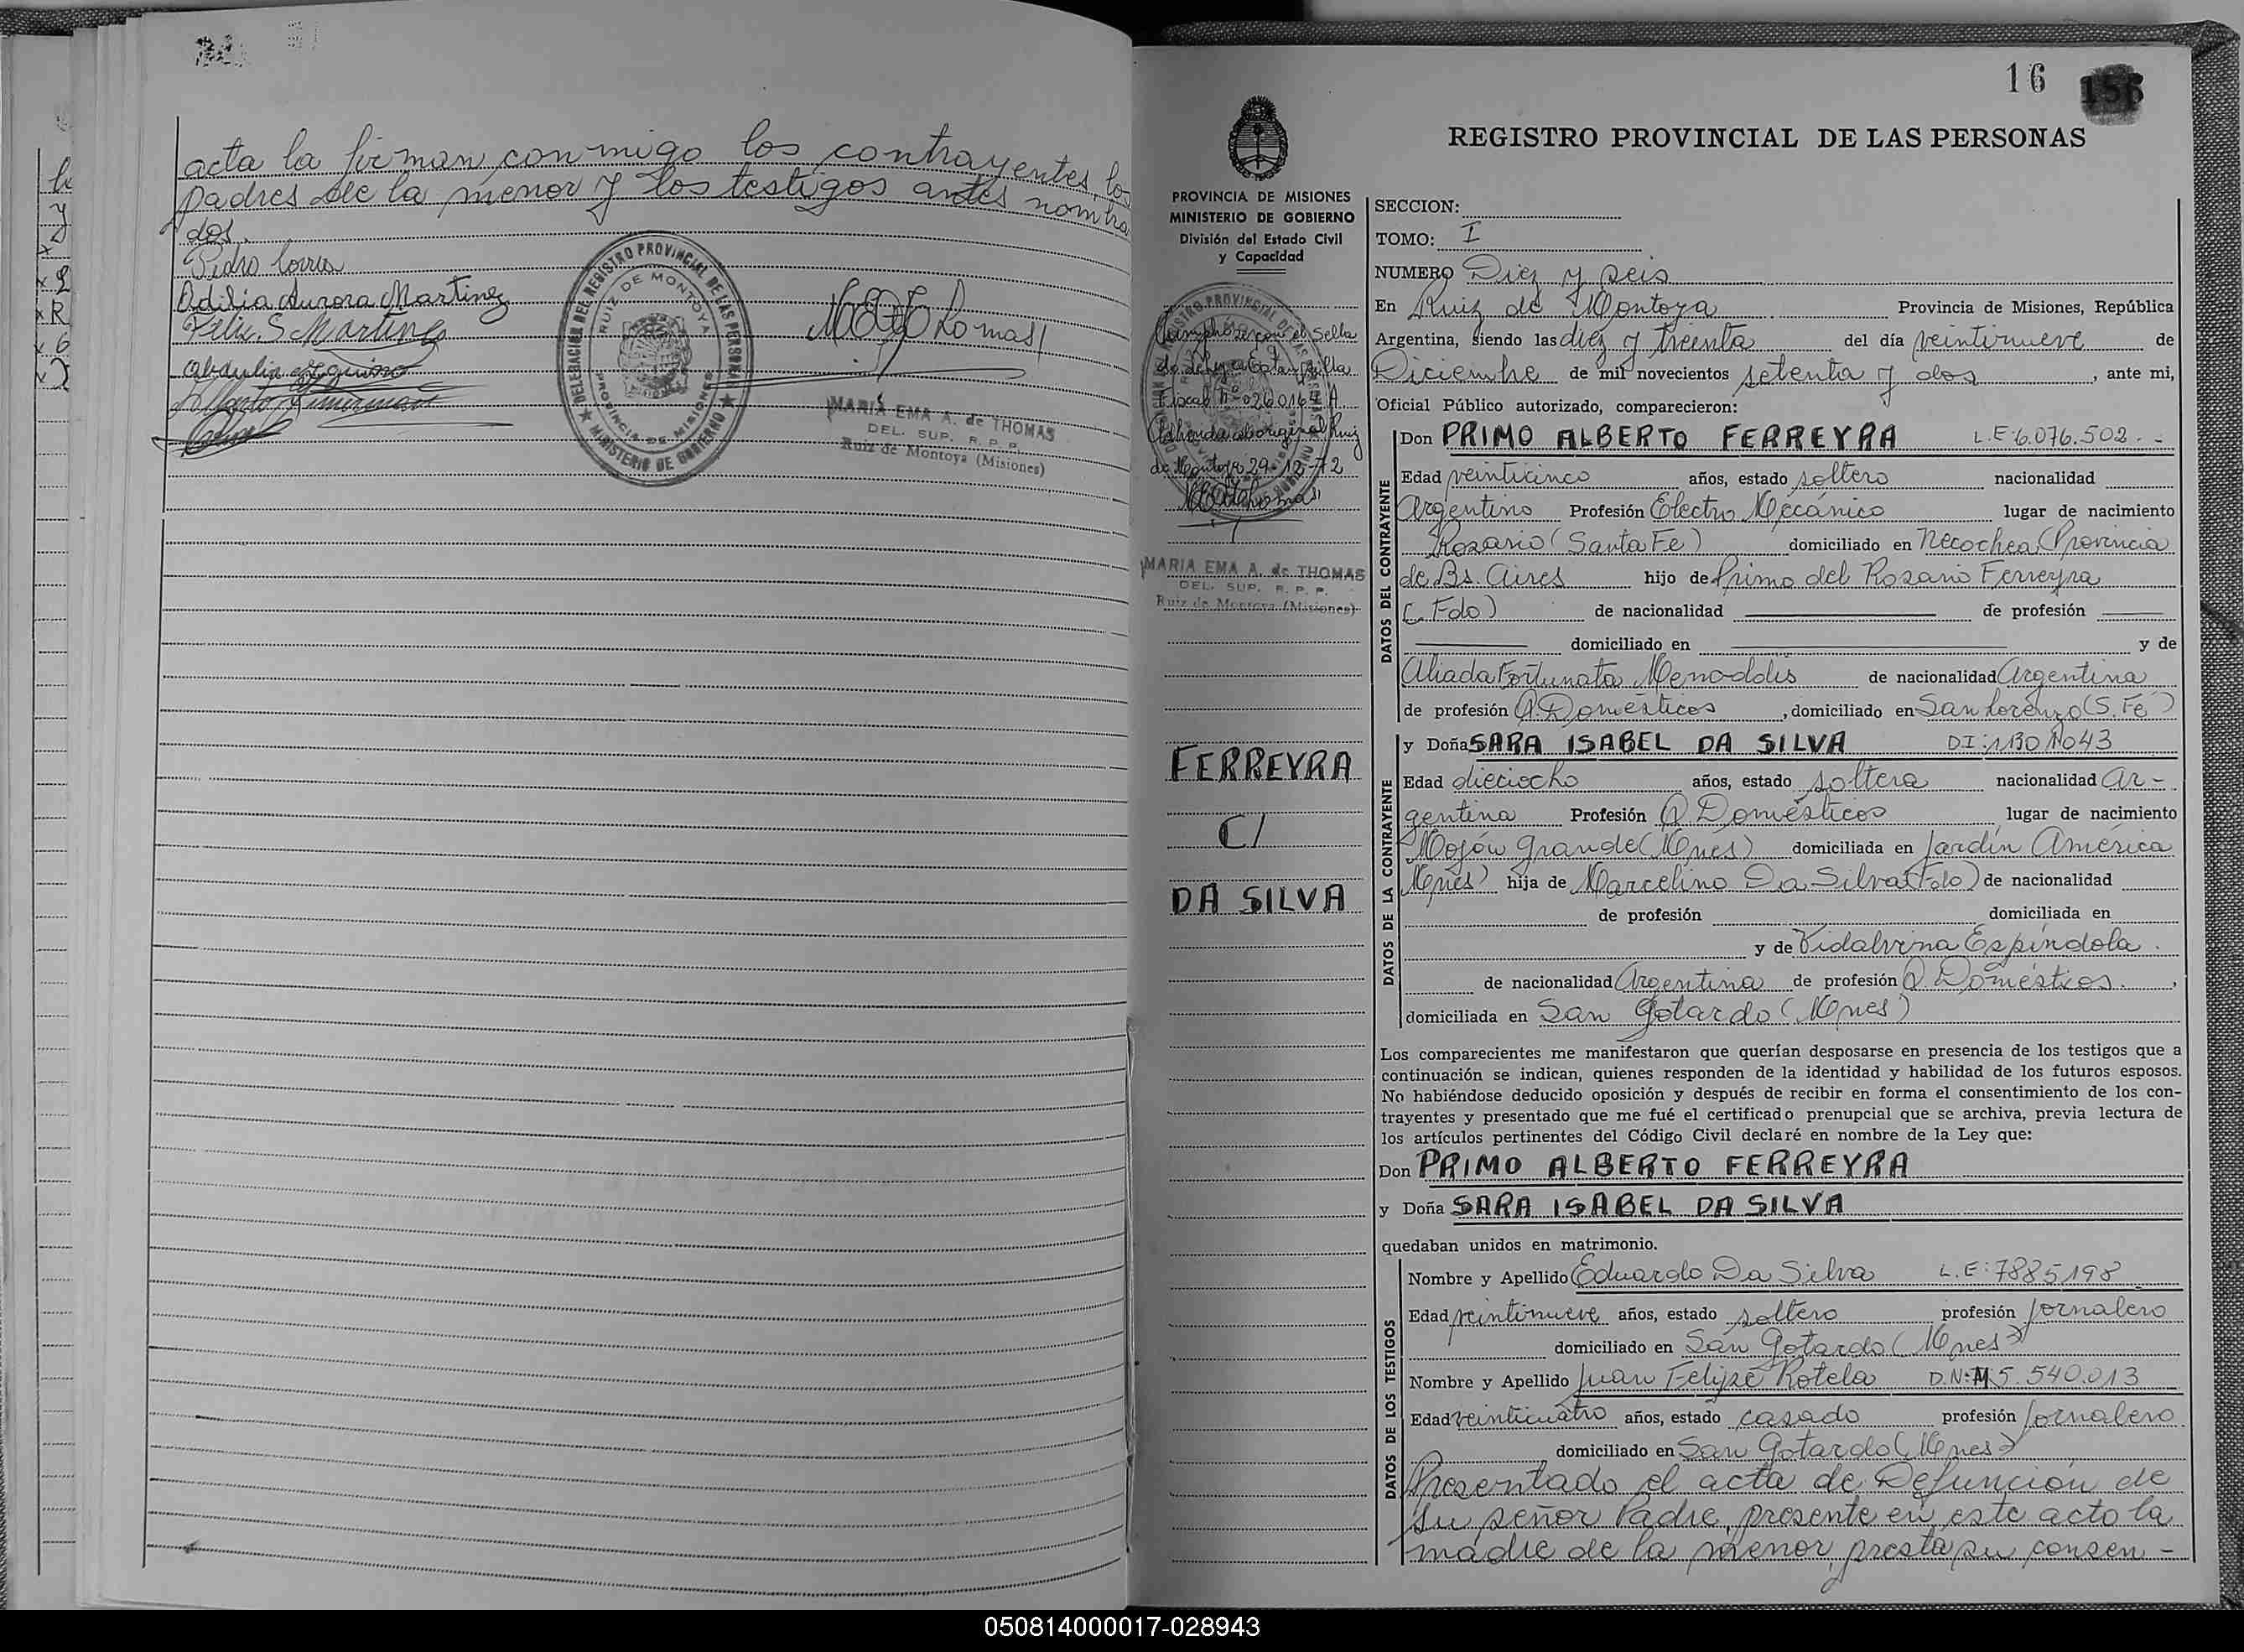 acta la firman conmigo los contrayentes, los
padres de la menor y los testigos antes nombra
dos.
Pedro
Adilia Aurora Martinez
Felix S Martinez
DELEGACION DEL REGISTRO PROVINCIAL DE LAS PERSONAS
RUIZ DE MONTOYA
PROVINCIA DE MISIONES
MINISTERIO DE GOBIERNO
MARIA EMA A. de THOMAS
DEL. SUP. R. P. P.
Ruiz de Montoya (Misiones)
16 156
REGISTRO PROVINCIAL DE LAS PERSONAS
PROVINCIA DE MISIONES
MINISTERIO DE GOBIERNO
División del Estado Civil
y Capacidad
con el Sella
do de Ley
Fiscal
Adherida al original Ruiz
de Montoya 29-12-72
MARIA EMA A. de THOMAS
DEL. SUP. R. P. P.
Ruiz de Montoya (Misiones)
FERREYRA
C/
DA SILVA
SECCION:
TOMO: I
NUMERO Diez y seis
En Ruiz de Montoya Provincia de Misiones, República
Argentina, siendo las diez y treinta del día veintinueve de
Diciembre de mil novecientos setenta y dos, ante mi,
Oficial Público autorizado, comparecieron:
DATOS DEL CONTRAYENTE
Don PRIMO ALBERTO FERREYRA L.E:6.076.502.-
Edad veinticinco años, estado soltero nacionalidad
Argentino Profesión Electro Mecánico lugar de nacimiento
Rosario (Santa Fe) domiciliado en Necochea (Provincia
de Bs. Aires hijo de Primo del Rosario Ferreyra
(Fdo) de nacionalidad de profesión
domiciliado en y de
Aliada Fortunata de nacionalidad Argentina
de profesión Q. Domésticos, domiciliado en San Lorenzo (S. Fé)
DATOS DE LA CONTRAYENTE
y Doña SARA ISABEL DA SILVA D.I:
Edad dieciocho años, estado soltera nacionalidad Ar-
gentina Profesión Q Domésticos lugar de nacimiento
Mojón Grande (Mnes) domiciliada en Jardín América
Mnes) hija de Marcelino Da Silva (Fdo) de nacionalidad
de profesión domiciliada en
y de Vidalvina Espíndola.
de nacionalidad Argentina de profesión Q Domésticos.,
domiciliada en San Gotardo (Mnes)
Los comparecientes me manifestaron que querían desposarse en presencia de los testigos que a
continuación se indican, quienes responden de la identidad y habilidad de los futuros esposos.
No habiéndose deducido oposición y después de recibir en forma el consentimiento de los con-
trayentes y presentado que me fué el certificado prenupcial que se archiva, previa lectura de
los artículos pertinentes del Código Civil declaré en nombre de la Ley que:
Don PRIMO ALBERTO FERREYRA
y Doña SARA ISABEL DA SILVA
quedaban unidos en matrimonio.
DATOS DE LOS TESTIGOS
Nombre y Apellido Eduardo Da Silva L.E:7885198
Edad veintinueve años, estado soltero profesión Jornalero
domiciliado en San Gotardo (Mnes)
Nombre y Apellido Juan Felipe Rotela D.N:M5.540.013
Edad veinticuatro años, estado casado profesión Jornalero
domiciliado en San Gotardo (Mnes)
Presentado el acta de Defunción de
su señor Padre, presente en este acto la
madre de la menor, presta su consen-
050814000017-028943